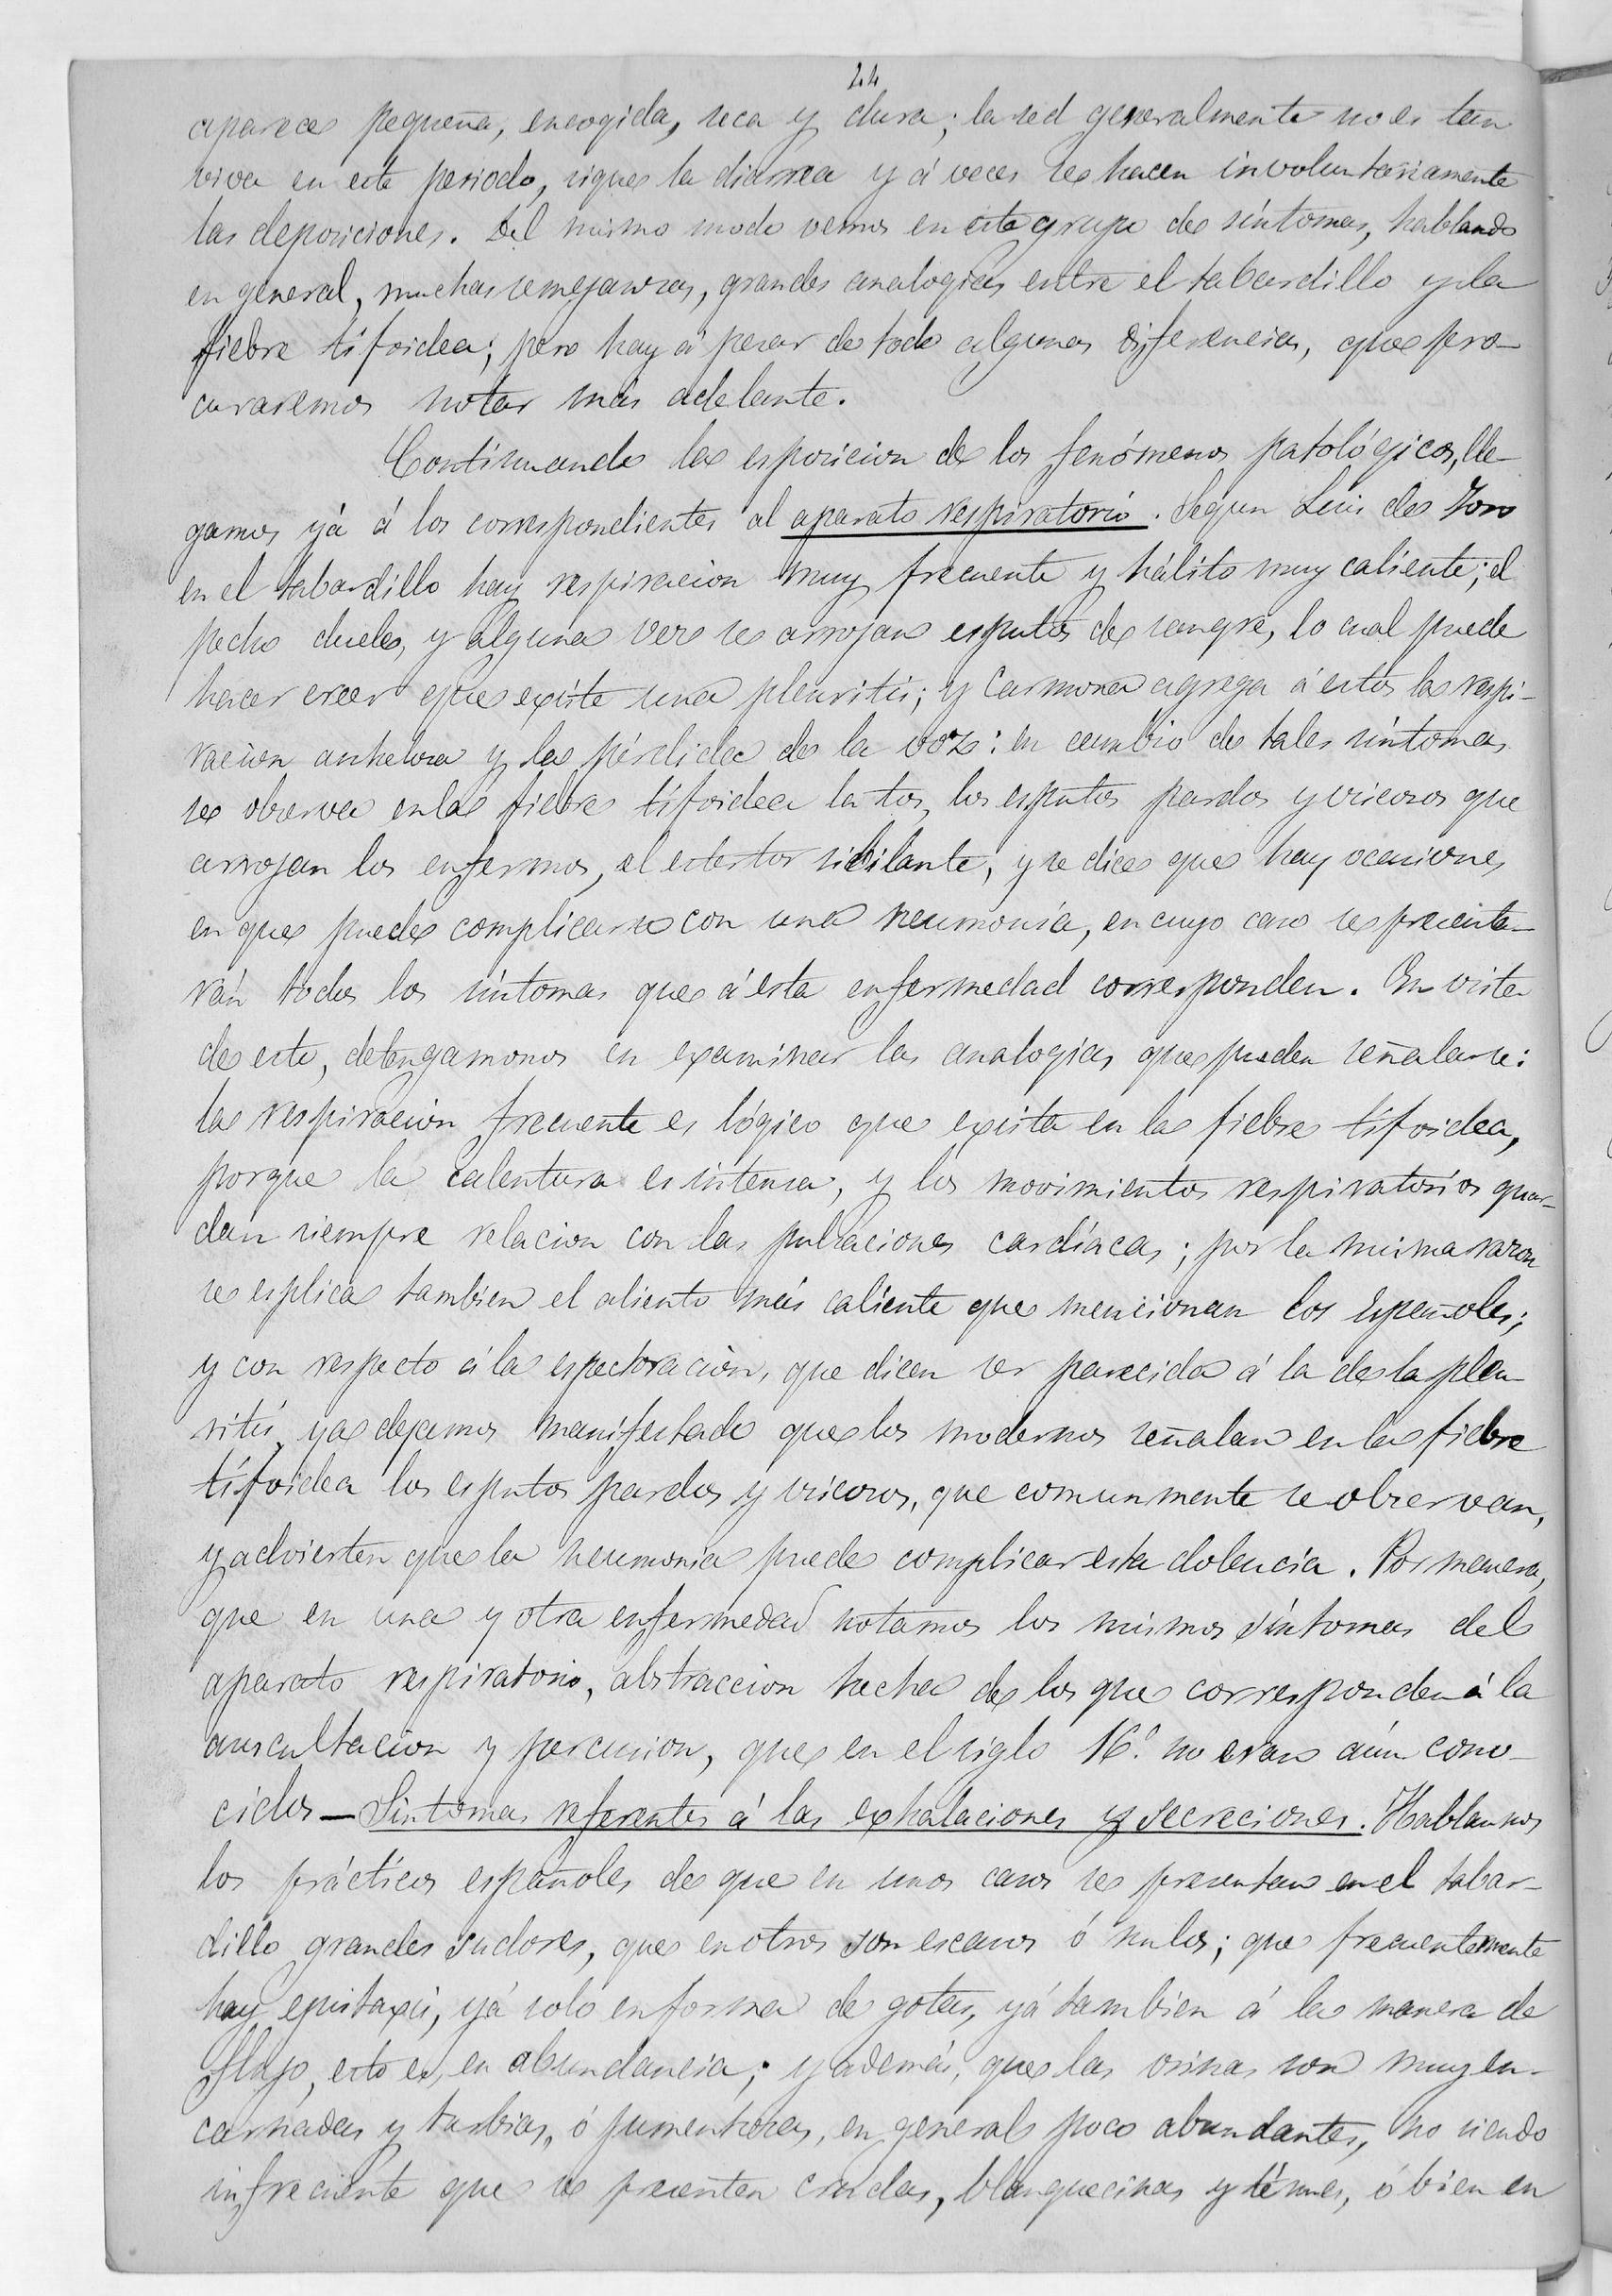 24
aparece pequeña, encogida, seca y dura; la sed generalmente no es tan
viva en este periodo, sigue la diarrea y á veces se hacen involuntariamente
las deposiciones. Del mismo modo vemos en este grupo de síntomas, hablando
en general, muchas semejanzas, grandes analogías entre el tabardillo y la
fiebre tifoidea; pero hay á pesar de todo algunas diferencias, que pro-
curaremos notar más adelante.
Continuando la esposicion de los fenómenos patológicos, lle-
gamos yá á los correspondientes al aparato respiratorio. Segun Luis de Toro
en el tabardillo hay respiracion muy frecuente y hálito muy caliente; el
pecho duele, y alguna vez se arrojan esputos de sangre, lo cual puede
hacer creer que existe una pleuritis; y Carmona agrega á estos la respi-
racion anhelosa y la pérdida de la voz: en cambio de tales síntomas
se observa en la fiebre tifoidea la tos, los esputos pardos y viscosos que
arrojan los enfermos, el estertor sibilante, y se dice que hay ocasiones
en que puede complicarse con una neumonía, en cuyo caso se presenta-
rán todos los síntomas que á esta enfermedad corresponden. En vista
de esto, detengamonos en examinar las analogias que pueden señalarse:
la respiracion frecuente es lógico que exista en la fiebre tifoidea,
porque la calentura es intensa, y los movimientos respiratorios guar-
dan siempre relacion con las pulsaciones cardíacas; por la misma razon
se esplica tambien el aliento más caliente que mencionan los Españoles;
y con respecto á la espectoracion, que dicen ser parecida á la de la pleu-
ritis, ya dejamos manifestado que los modernos señalan en la fiebre
tifoidea los esputos pardos y viscosos, que comunmente se observan,
y advierten que la neumonia puede complicar esta dolencia. Por manera,
que en una y otra enfermedad notamos los mismos síntomas del
aparato respiratorio, abstraccion hecha de los que corresponden á la
auscultacion y percusion, que en el siglo 16.º no eran aún cono-
cidos — Síntomas referentes á las exhalaciones y secreciones. Hablannos
los prácticos españoles de que en unos casos se presentan en el tabar-
dillo grandes sudores, que en otros son escasos ó nulos; que frecuentemente
hay epistaxis, yá solo en forma de gotas, yá tambien á la manera de
flujo, esto es, en abundancia; y además, que las orinas son muy en-
carnadas y turbias, ó jumentosas, en general poco abundantes, no siendo
infrecuente que se presenten crudas, blanquecinas y ténues, ó bien en